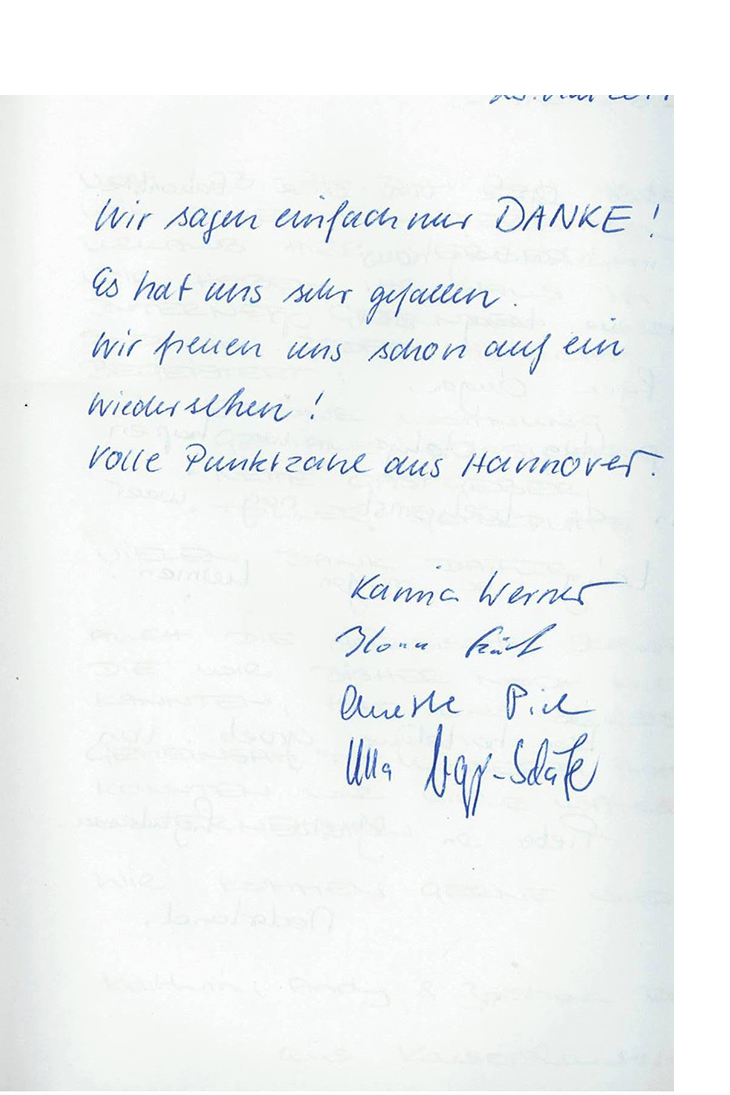 Wir sagen einfach nur DANKE!
Es hat uns sehr gefallen.
Wir freuen uns schon auf ein
Wiedersehen!
Volle Punktzahl aus Hannover.
Werner
Ilona
Annette
Ulla